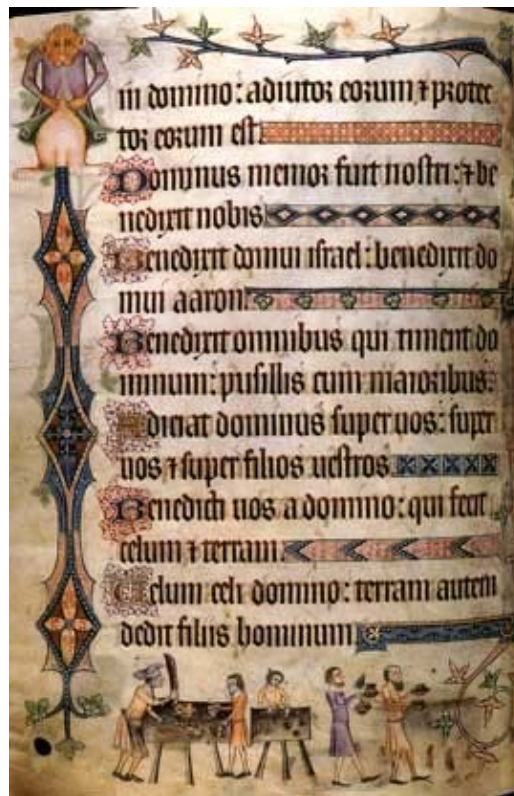 in domino: adiutor eorum ⁊ protec
tor eorum est.
Dominus memor fuit nostri: ⁊ be
nedixit nobis
Benedixit domui israel: benedixit do
mui aaron.
Benedixit omnibus qui timent do
minum: pusillis cum maioribus.
Adiciat dominus super uos: super
uos ⁊ super filios uestros
Benedicti uos a domino: qui fecit
celum ⁊ terram.
Celum celi domino: terram autem
dedit filiis hominum